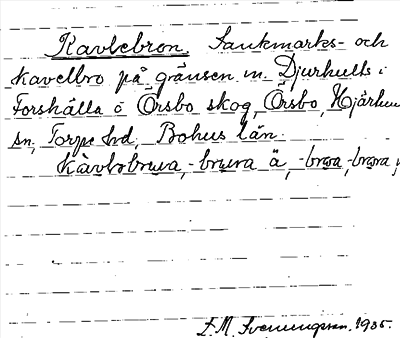 Kavlebron. Sankmarks- och
kavelbro på gränsen m. Djurhults i
Forshälla o Örsbo skog, Örsbo, Hjärtum
sn, Torpe hd, Bohus län.
Kàvləbruwa, -bruwa ä, -brωa, -brωra,
E. M. Svenungsson. 1935.